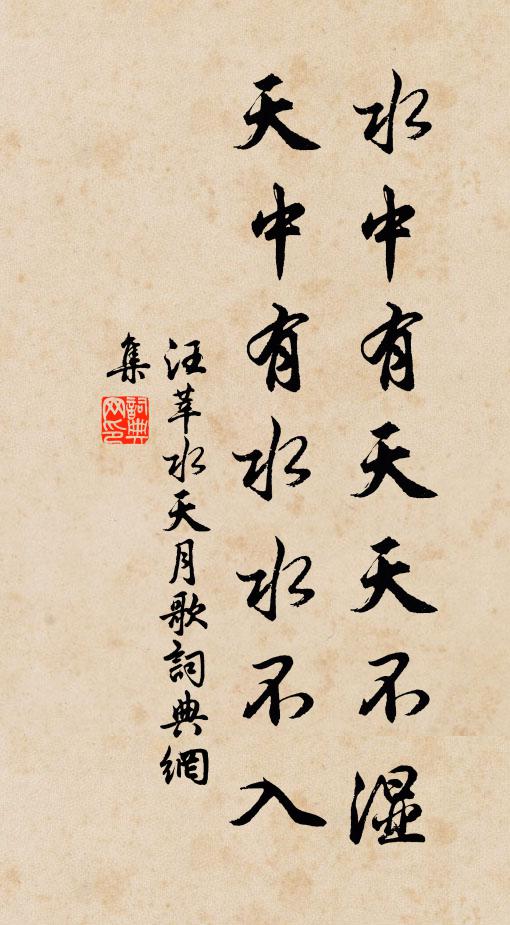 水中有天天不湿
天中有水水不入
汪莘水天月歌詞典網
集
詞典網印